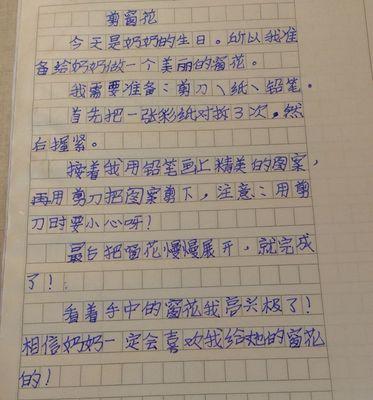 剪窗花
今天是奶奶的生日。所以我准
备给奶奶做一个美丽的窗花。
我需要准备：剪刀、纸、铅笔。
首先把一张彩纸对折3次，然
后握紧。
接着我用铅笔画上精美的图案，
再用剪刀把图案剪下，注意：用剪
刀时要小心呀！
最后把窗花慢慢展开，就完成
了！
看着手中的窗花我高兴极了！
相信奶奶一定会喜欢我给她的窗花
的！